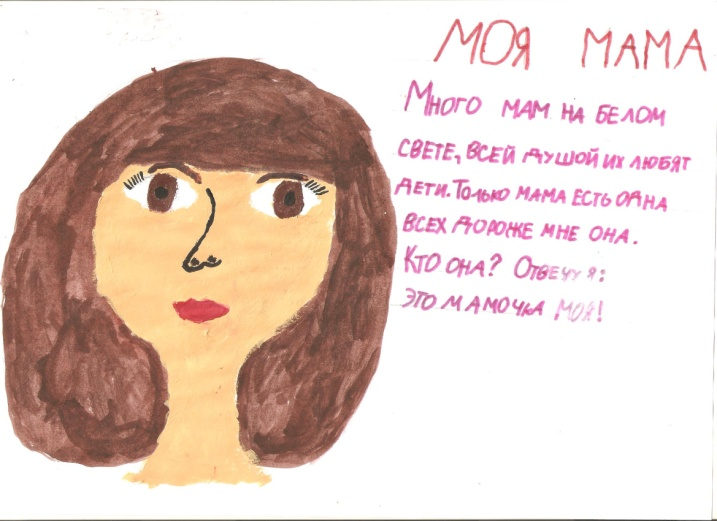 МОЯ МАМА
МНОГО МАМ НА БЕЛОМ
СВЕТЕ, ВСЕЙ ДУШОЙ ИХ ЛЮБЯТ
ДЕТИ. ТОЛЬКО МАМА ЕСТЬ ОДНА
ВСЕХ ДОРОЖЕ МНЕ ОНА.
КТО ОНА? ОТВЕЧУ Я:
ЭТО МАМОЧКА МОЯ!